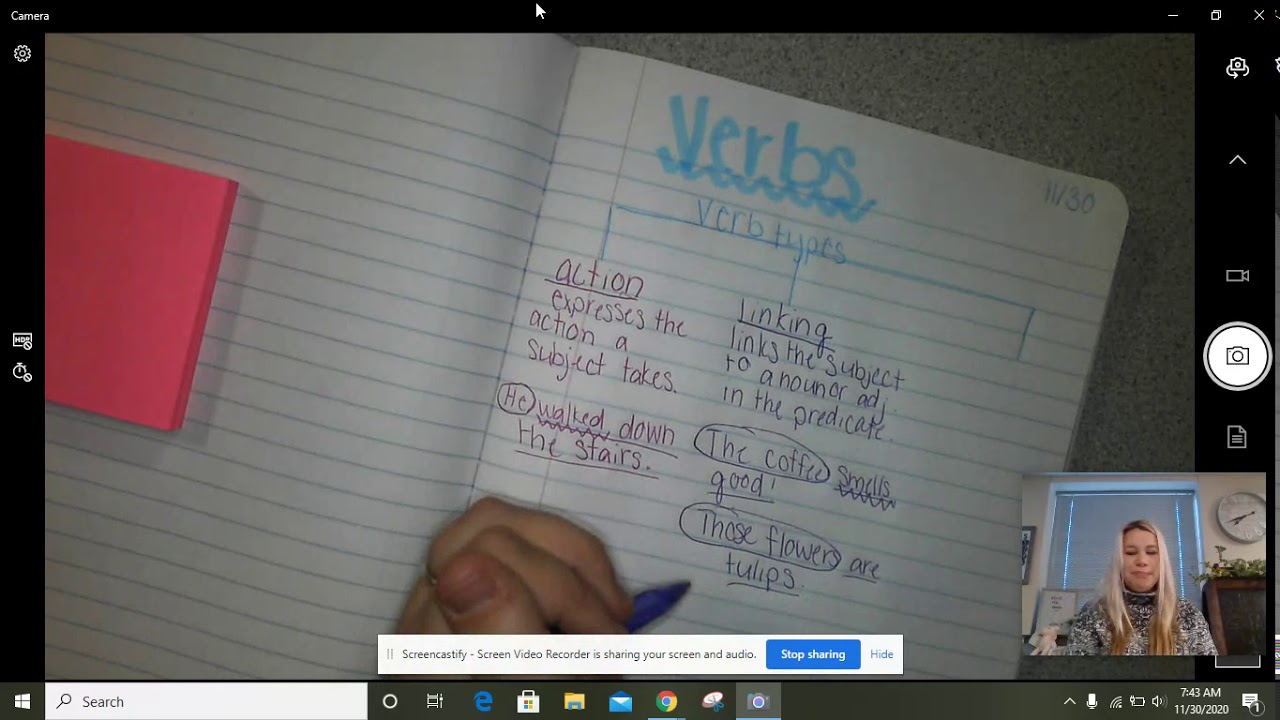 Camera
Verbs
11/30
Verb types
action
expresses the
action a
subject takes.
He walked down
the stairs.
linking
links the subject
to a noun or adj.
in the predicate.
The coffee smells
good!
Those flowers are
tulips.
Screencastify - Screen Video Recorder is sharing your screen and audio.
Stop sharing
Hide
Search
7:43 AM
11/30/2020